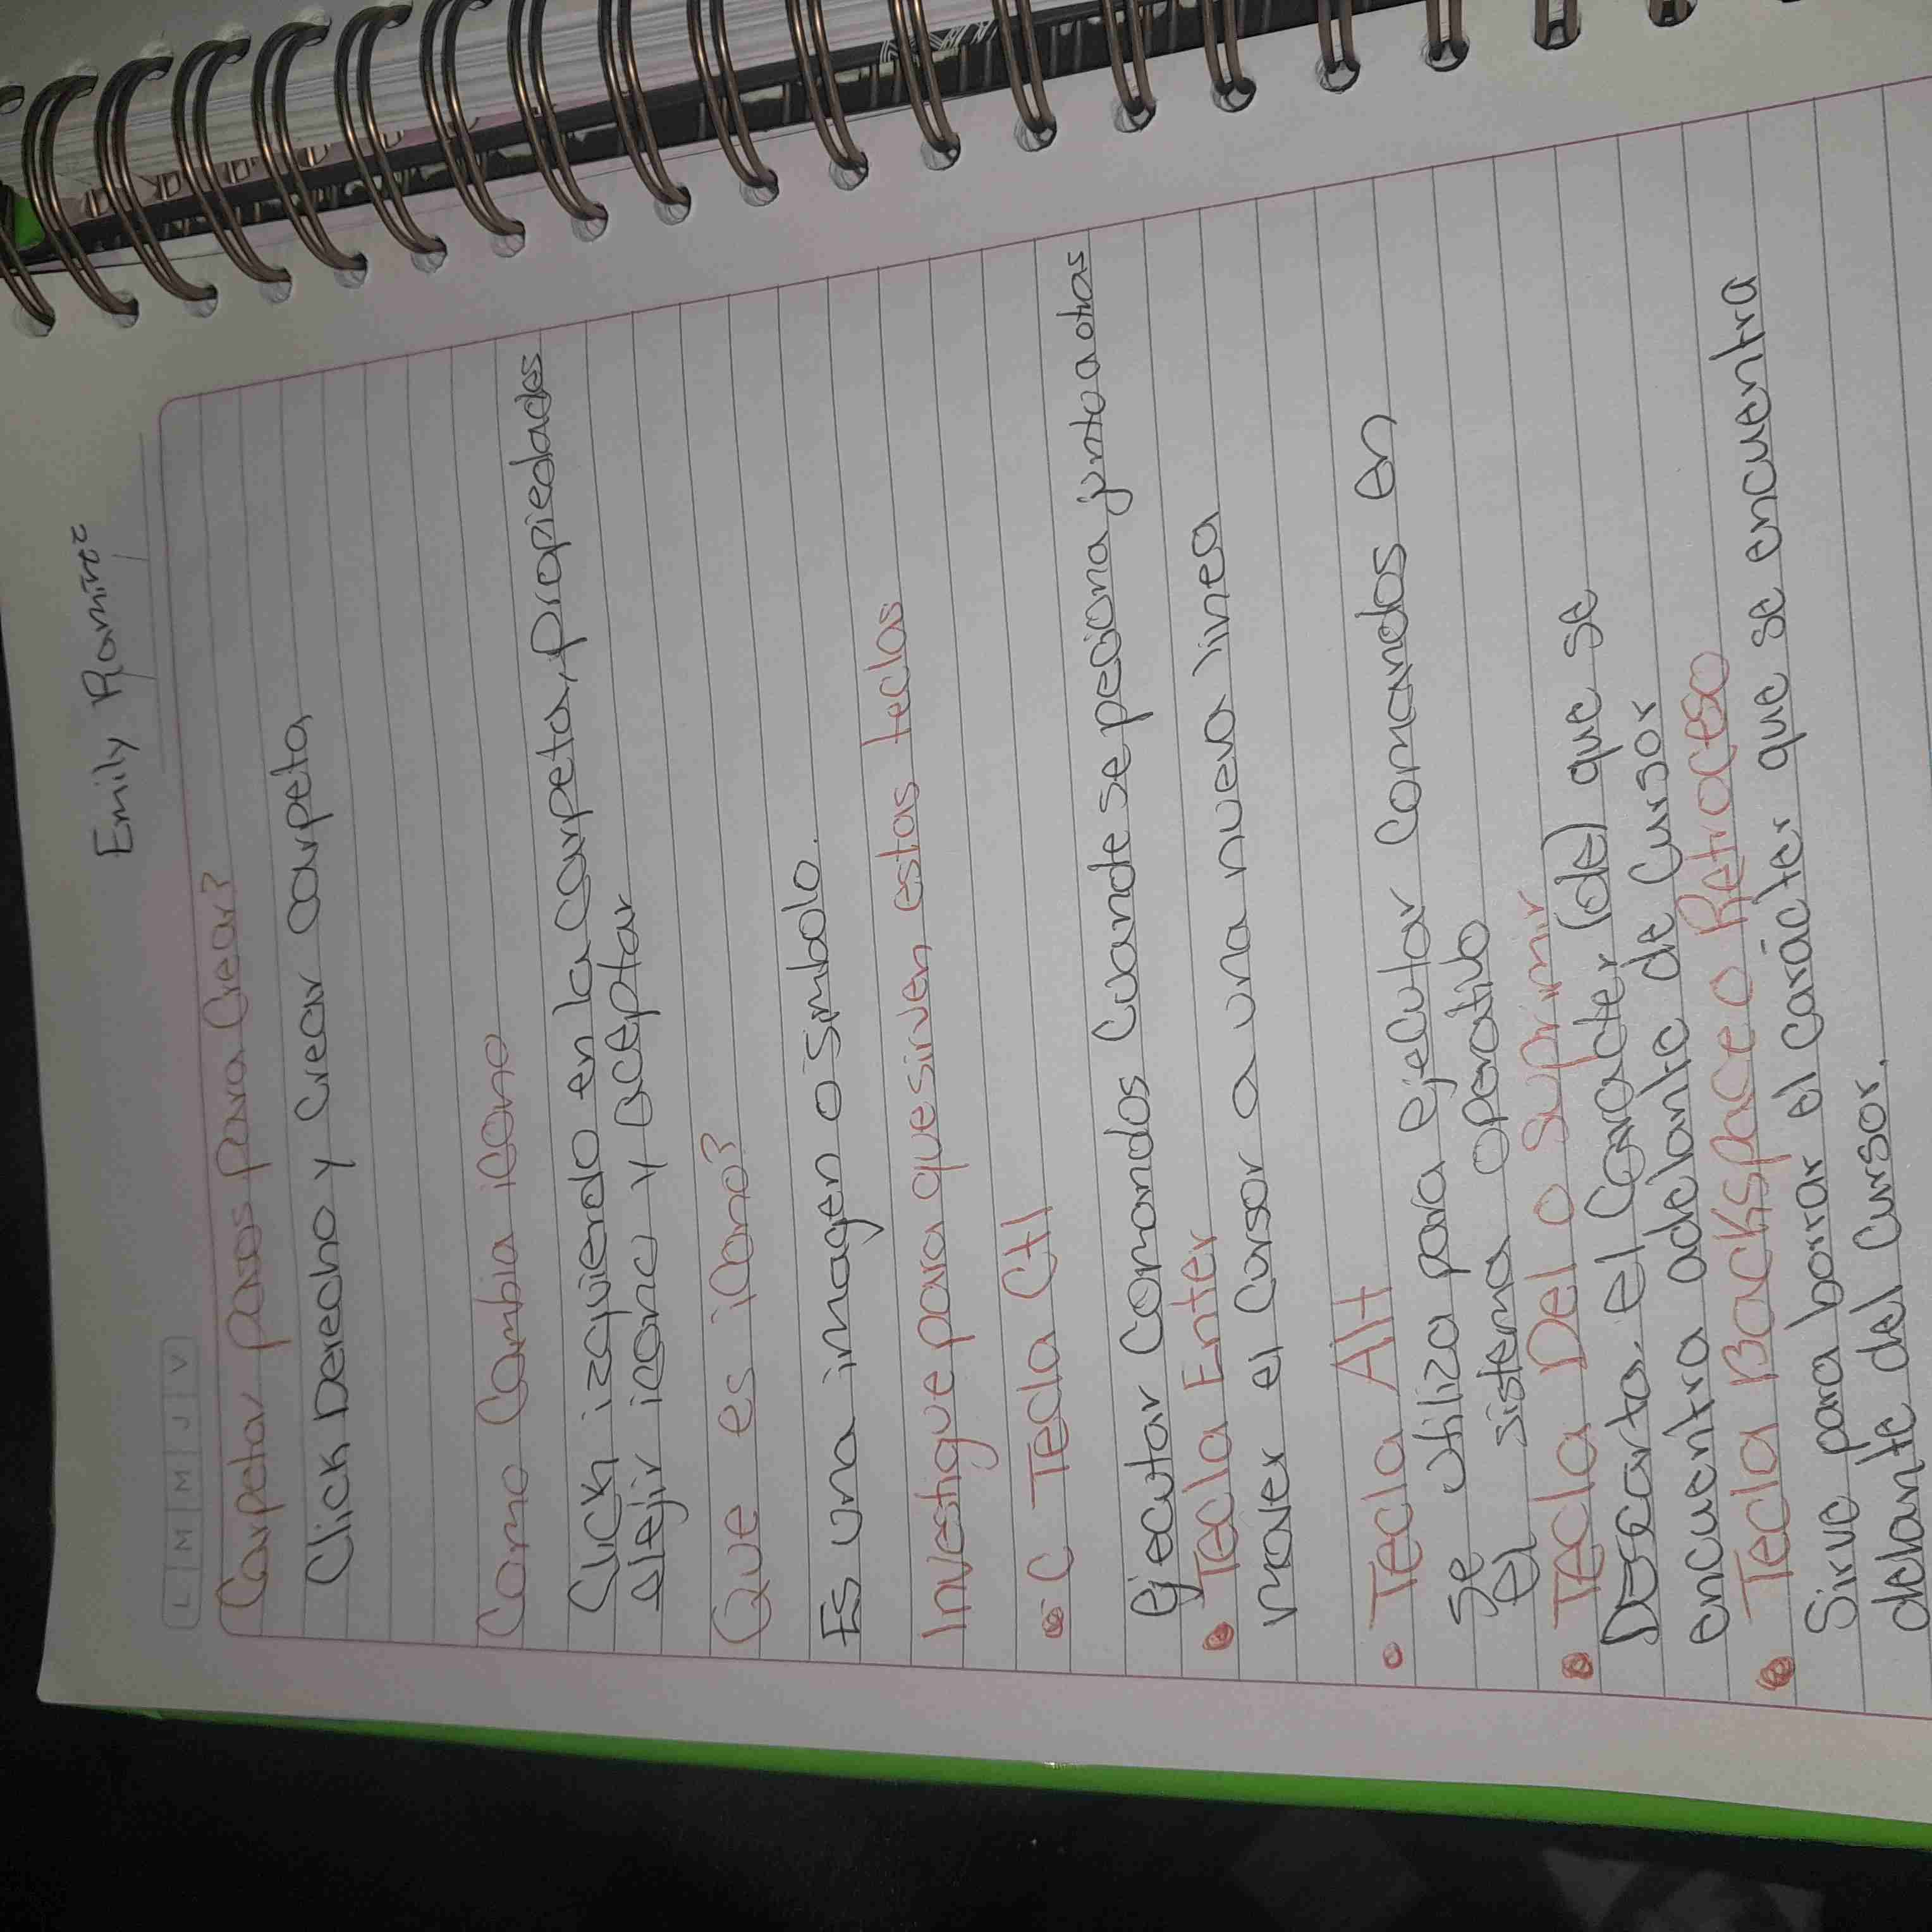 Emily Ramirez
L M M J V
Carpetar pasos para Crear?
Click Derecho y Crear carpeta,
Como Cambia icono
Click izquierdo en la carpeta, propiedades
elejir icono y aceptar
Que es icono?
Es una imagen o simbolo.
Investigue para que sirven estas teclas
• C Tecla Ctl
Ejecutar Comandos Cuande se peciona junto a otras
• Tecla Enter
mover el Cursor a una nueva linea
• Tecla Alt
se utiliza para ejecutar Comandos en
el sistema operativo
• Tecla Del o Suprimir
Descarta. el Caracter (de) que se
encuentra adelante de Cursor
• Tecla Backspace o Retroceso
Sirve para borrar el carácter que se encuentra
delante del Cursor.